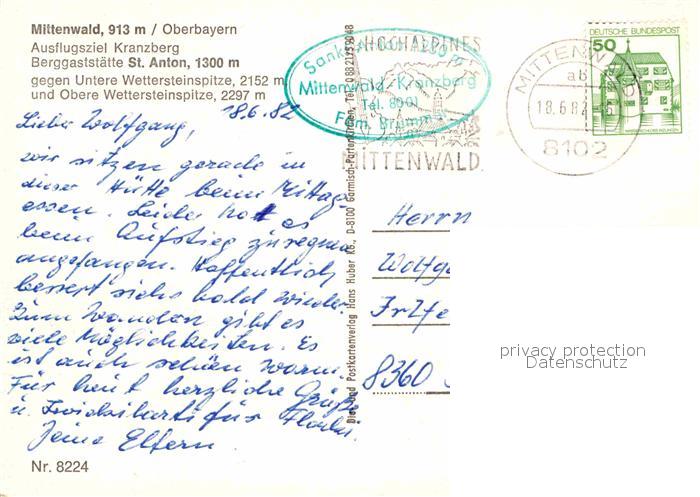 Mittenwald, 913 m / Oberbayern
Ausflugsziel Kranzberg
Berggaststätte St. Anton, 1300 m
gegen Untere Wettersteinspitze, 2152 m
und Obere Wettersteinspitze, 2297 m
18.6.82
Lieber Wolfgang,
wir sitzen gerade in
dieser Hütte beim Mittag-
essen. Leider hat es
beim Aufstieg zu regnen
angefangen. Hoffentlich
bessert sichs bald wieder.
Zum Wandern gibt es
viele Möglichkeiten. Es
ist auch schön warm.
Für heut herzliche Grüße
u. für Flocki.
Deine Eltern.
Nr. 8224
Die- und Postkartenverlag Hans Huber KG., D-8100 Garmisch-Partenkirchen, Tel. 08821
Sankt Anton 1300 m
Mittenwald-Kranzberg
Tel. 8001
Fam.
HOCHALPINES
MITTENWALD
MITTENWALD
ab
18.6.82
8102
DEUTSCHE BUNDESPOST
50
WASSERSCHLOSS INZLINGEN
Herrn
Wolfg
8360
privacy protection
Datenschutz